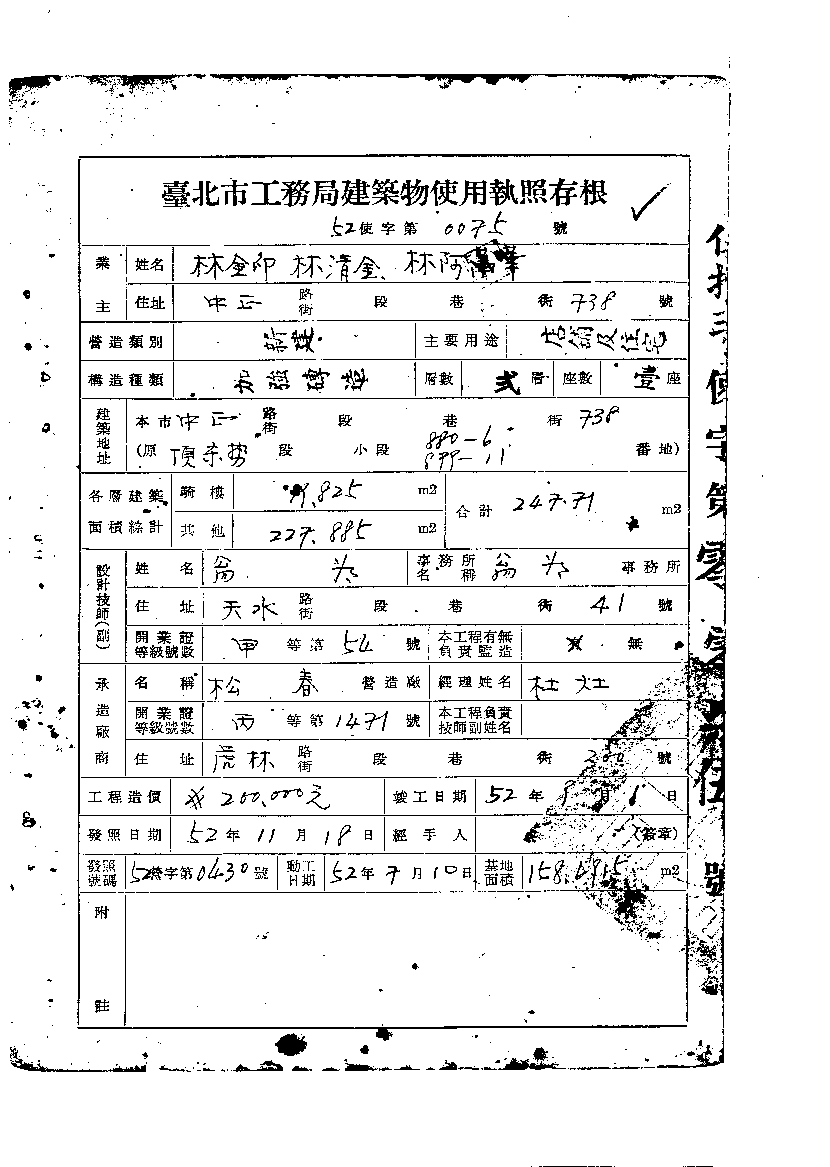 臺北市工務局建築物使用執照存根
52使字第 0075 號
業主 姓名 林金印 林清金、林阿
住址 中正 路街 段 巷 街 738 號
營造類別 新建 主要用途 店舖及住宅
構造種類 加強磚造 層數 弍層 座數 壹座
建築地址 本市中正 路街 段 巷 街 738
(原 頂東勢 段 小段 880-6 899-11 番地)
各層建築面積綜計 騎樓 9.825 m2 合計 247.71 m2
其他 227.885 m2
設計技師(副) 姓名 翁 事務所名稱 翁 事務所
住址 天水 路街 段 巷 街 41 號
開業證等級號數 甲 等第 54 號 本工程有無負責監造 無
承造廠商 名稱 松春 營造廠 經理姓名 杜灶
開業證等級號數 丙 等第 1471 號 本工程負責技師副姓名
住址 虎林 路街 段 巷 街 200 號
工程造價 200,000元 竣工日期 52年 9月 6日
發照日期 52年 11月 18日 經手人 (簽章)
發照號碼 52營字第0430號 動工日期 52年 7月 10日 基地面積 158.4915 m2
附註
伍拾弍使字第零零柒伍號